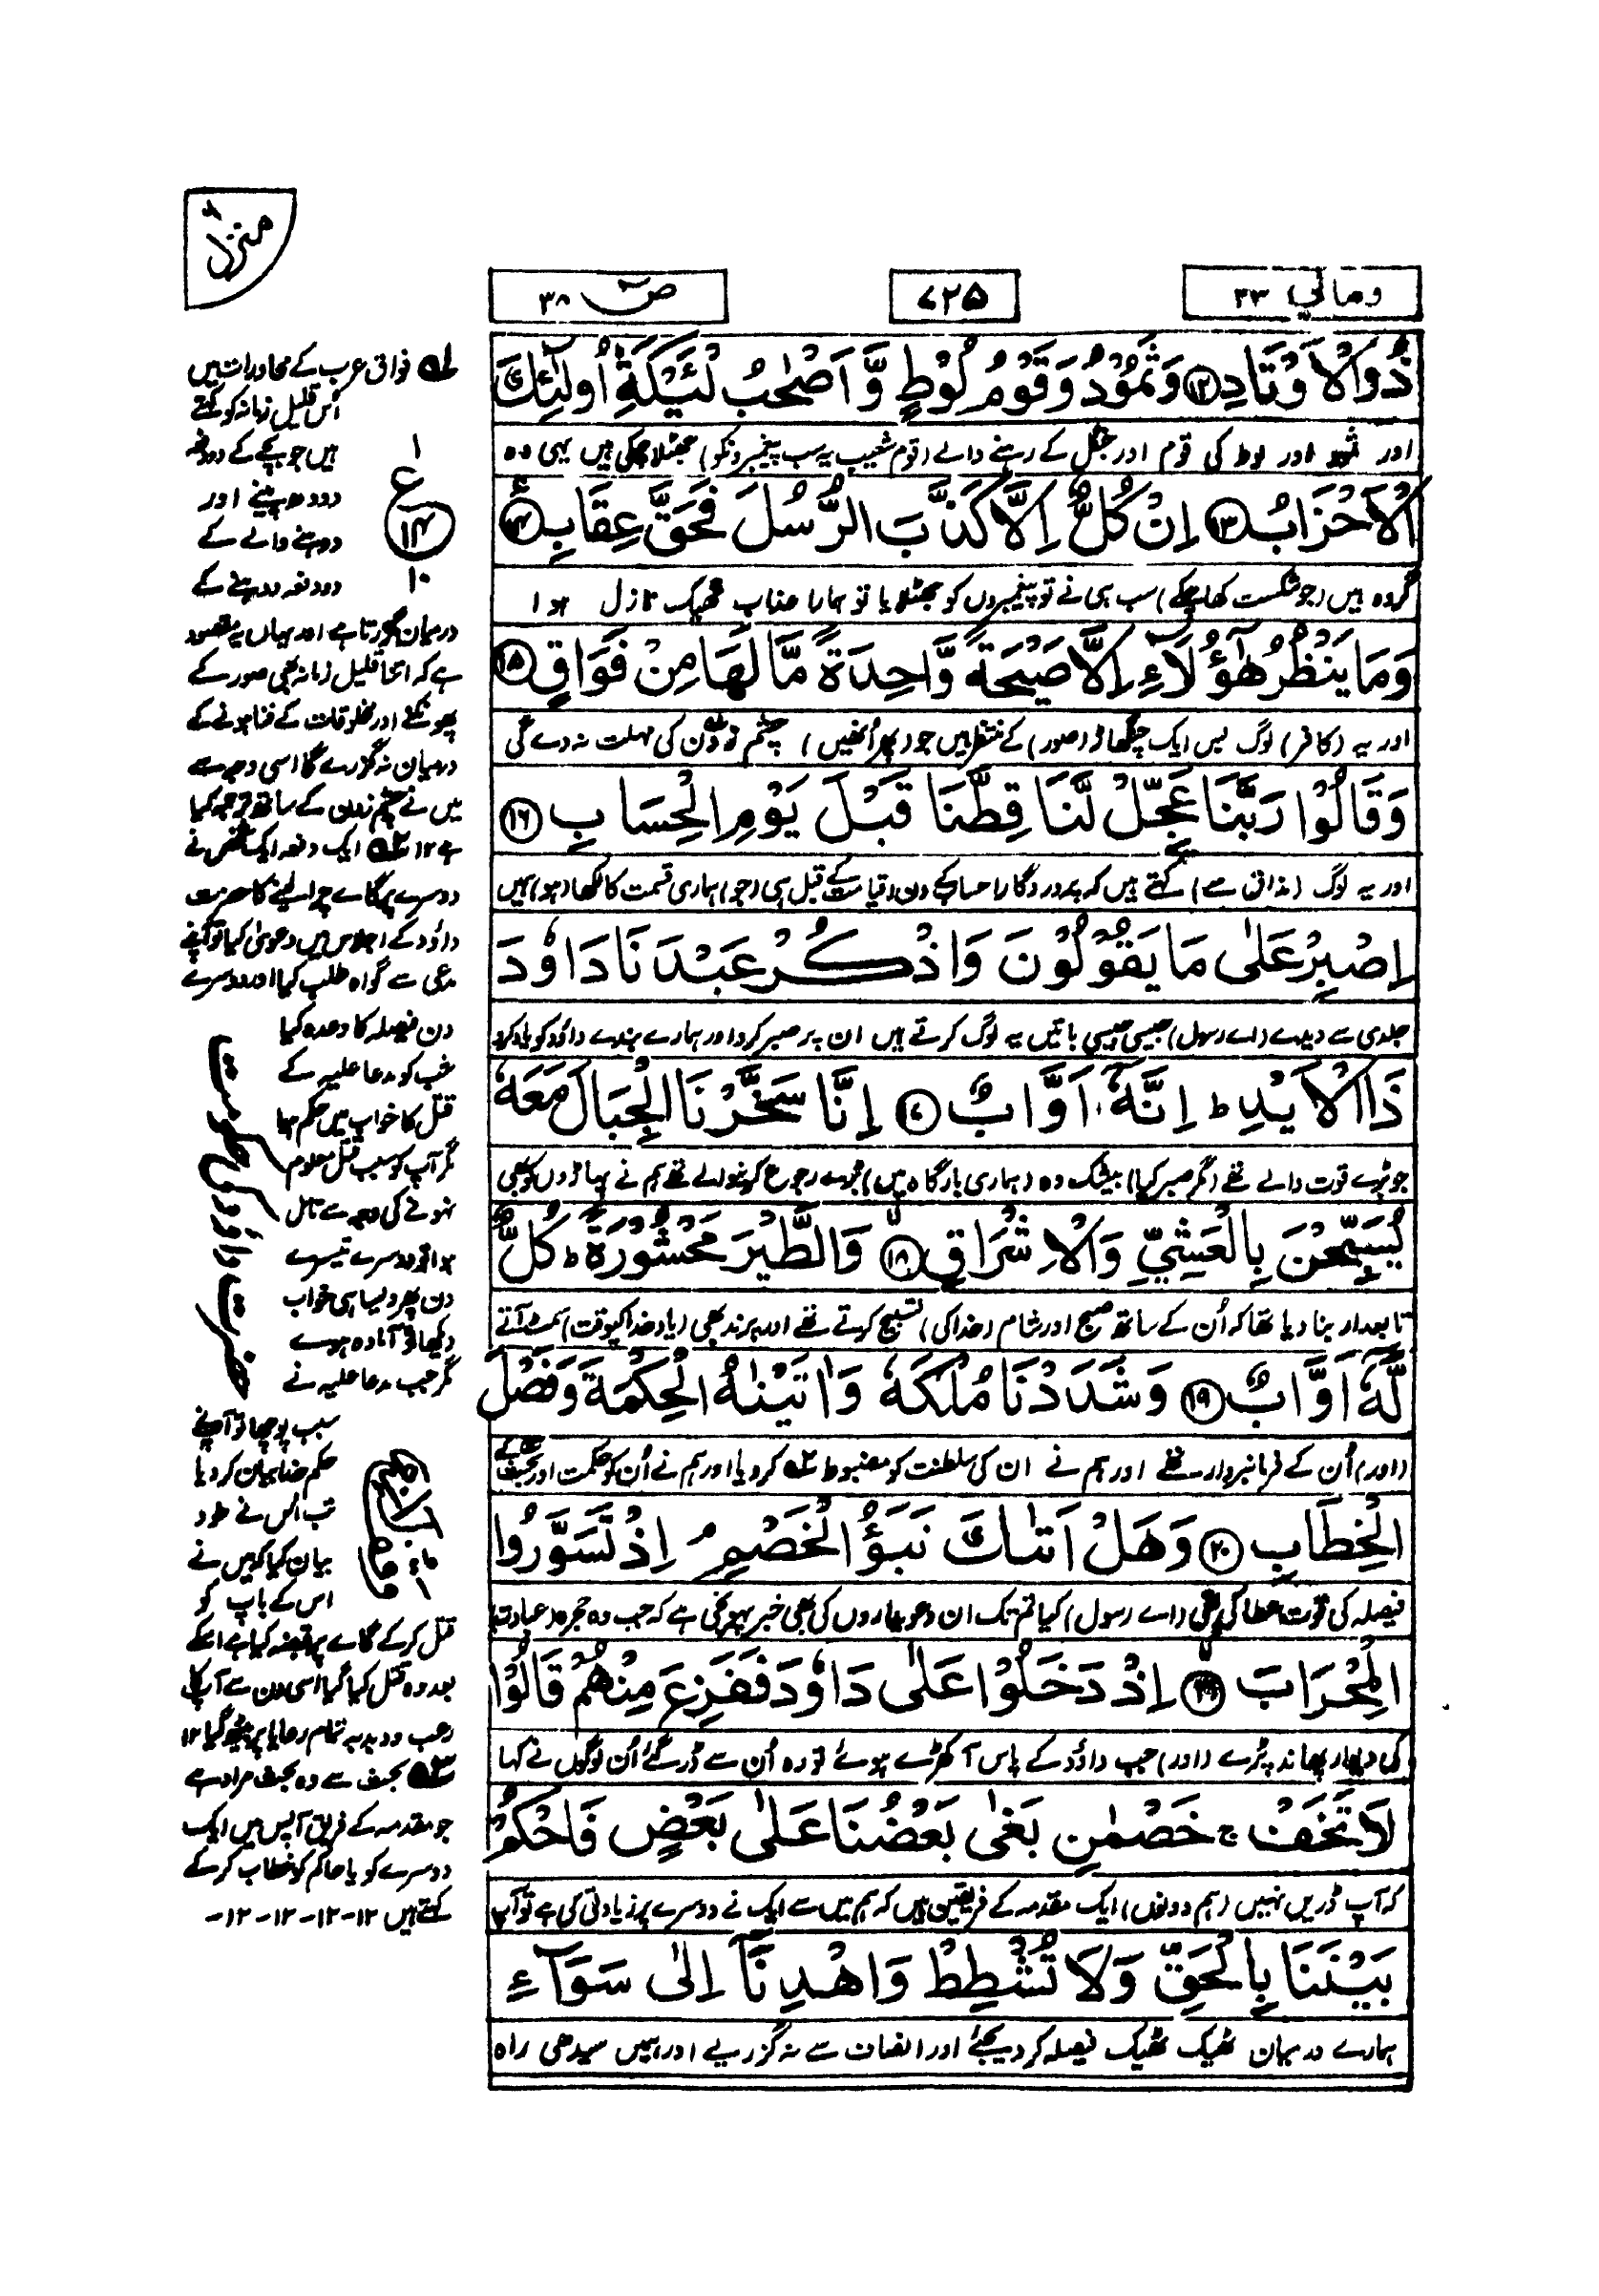 منزل ۶
ومالي ۲۳
۷۲۵
صٓ ۳۸
ذُوالْاَوْتَادِ ۱۲ وَثَمُوْدُ وَقَوْمُ لُوْطٍ وَّاَصْحٰبُ لْئَيْكَةِ اُولٰٓئِكَ
اور ثمود اور لوط کی قوم اور جنگل کے رہنے والے (قوم شعیب یہ سب پیغمبرونکو) جھٹلا چکی ہیں یہی وہ
الْاَحْزَابُ ۱۳ اِنْ كُلٌّ اِلَّا كَذَّبَ الرُّسُلَ فَحَقَّ عِقَابِ ۱۴
گروہ ہیں (جو شکست کھا چکے) سب ہی نے تو پیغمبروں کو جھٹلایا تو ہمارا عذاب ٹھیک نازل ہوا
وَمَا يَنْظُرُ هٰٓؤُلَآءِ اِلَّا صَيْحَةً وَّاحِدَةً مَّا لَهَا مِنْ فَوَاقٍ ۱۵
اور یہ (کافر) لوگ بس ایک چنگھاڑ (صور) کے منتظر ہیں جو (پھر اُنھیں) چشم زدن کی مہلت نہ دے گی
وَقَالُوْا رَبَّنَا عَجِّلْ لَّنَا قِطَّنَا قَبْلَ يَوْمِ الْحِسَابِ ۱۶
اور یہ لوگ (مذاق سے) کہتے ہیں کہ پروردگارا حساب کے دن (قیامت کے) قبل ہی (جو) ہماری قسمت کا لکھا (ہو) ہمیں
اِصْبِرْ عَلٰى مَا يَقُوْلُوْنَ وَاذْكُرْ عَبْدَنَا دَاوٗدَ
جلدی سے دیدے (اے رسول) جیسی جیسی باتیں یہ لوگ کرتے ہیں ان پر صبر کرو اور ہمارے بندے داؤد کو یاد کرو
ذَا الْاَيْدِ ط اِنَّهٗٓ اَوَّابٌ ۱۷ اِنَّا سَخَّرْنَا الْجِبَالَ مَعَهٗ
جو بڑے قوت والے تھے (مگر صبر کیا) بیشک وہ (ہماری بارگاہ میں) بڑے رجوع کرنیوالے تھے ہم نے پہاڑوں کو بھی
يُسَبِّحْنَ بِالْعَشِيِّ وَالْاِشْرَاقِ ۱۸ وَالطَّيْرَ مَحْشُوْرَةً ط كُلٌّ
تابعدار بنا دیا تھا کہ اُن کے ساتھ صبح اور شام (خدا کی) تسبیح کرتے تھے اور پرند بھی (یاد خدا کیوقت) سمٹ آتے
لَّهٗٓ اَوَّابٌ ۱۹ وَشَدَدْنَا مُلْكَهٗ وَاٰتَيْنٰهُ الْحِكْمَةَ وَفَصْلَ
(اور) اُن کے فرمانبردار تھے اور ہم نے ان کی سلطنت کو مضبوط ۲؎ کر دیا اور ہم نے اُن کو حکمت اور بحث کے
الْخِطَابِ ۲۰ وَهَلْ اَتٰىكَ نَبَؤُا الْخَصْمِ م اِذْ تَسَوَّرُوا
فیصلہ کی قوت عطا کی تھی (اے رسول) کیا تم تک ان دعویداروں کی بھی خبر پہونچی ہے کہ جب وہ حجرہ (عبادت)
الْمِحْرَابَ ۲۱ اِذْ دَخَلُوْا عَلٰى دَاوٗدَ فَفَزِعَ مِنْهُمْ قَالُوْا
کی دیوار پھاند پڑے (اور) جب داؤد کے پاس آ کھڑے ہوئے تو وہ اُن سے ڈر گئے اُن لوگوں نے کہا
لَا تَخَفْ ج خَصْمٰنِ بَغٰى بَعْضُنَا عَلٰى بَعْضٍ فَاحْكُمْ
کہ آپ ڈریں نہیں (ہم دونوں) ایک مقدمہ کے فریقین ہیں کہ ہم میں سے ایک نے دوسرے پر زیادتی کی ہے تو آپ
بَيْنَنَا بِالْحَقِّ وَلَا تُشْطِطْ وَاهْدِنَآ اِلٰى سَوَآءِ
ہمارے درمیان ٹھیک ٹھیک فیصلہ کر دیجئے اور انصاف سے نہ گزریے اور ہمیں سیدھی راہ
۱؎ فواق عرب کے محاورات میں
اُس قلیل زمانہ کو کہتے
ہیں جو بچے کے دو دفعہ
دودھ پینے اور
دوہنے والے کے
دو دفعہ دوہنے کے
۱
ع
۱۴
۱۰
درمیان گزرتا ہے اور یہاں یہ مقصود
ہے کہ اتنا قلیل زمانہ بھی صور کے
پھونکنے اور مخلوقات کے فنا ہونے کے
درمیان نہ گزرے گا اسی وجہ سے
میں نے چشم زدن کے ساتھ ترجمہ کیا
ہے ۱۲ ۲؎ ایک دفعہ ایک شخص نے
دوسرے پر گائے چرا لینے کا حضرت
داؤد کے اجلاس میں دعویٰ کیا تو آپ نے
مدعی سے گواہ طلب کیا اور دوسرے
دن فیصلہ کا وعدہ کیا
شب کو مدعا علیہ کے
قتل کا خواب میں حکم ہوا
مگر آپ کو سبب قتل معلوم
نہونے کی وجہ سے تامل
ہوا تو دوسرے تیسرے
دن پھر ویسا ہی خواب
دیکھا تو آمادہ ہوے
مگر جب مدعا علیہ نے
سبب پوچھا تو آپ نے
حکم خدا بیان کر دیا
تب اُس نے خود
بیان کیا کہ میں نے
اس کے باپ کو
قتل کرکے گائے پر قبضہ کیا ہے اسکے
بعد وہ قتل کیا گیا اسی دن سے آپ کا
رعب و دبدبہ تمام رعایا پر بیٹھ گیا ۱۲
۳؎ بحث سے وہ بحث مراد ہے
جو مقدمہ کے فریق آپس میں ایک
دوسرے کو یا حاکم کو خطاب کر کے
کہتے ہیں ۱۲-۱۲-۱۲-۱۲-